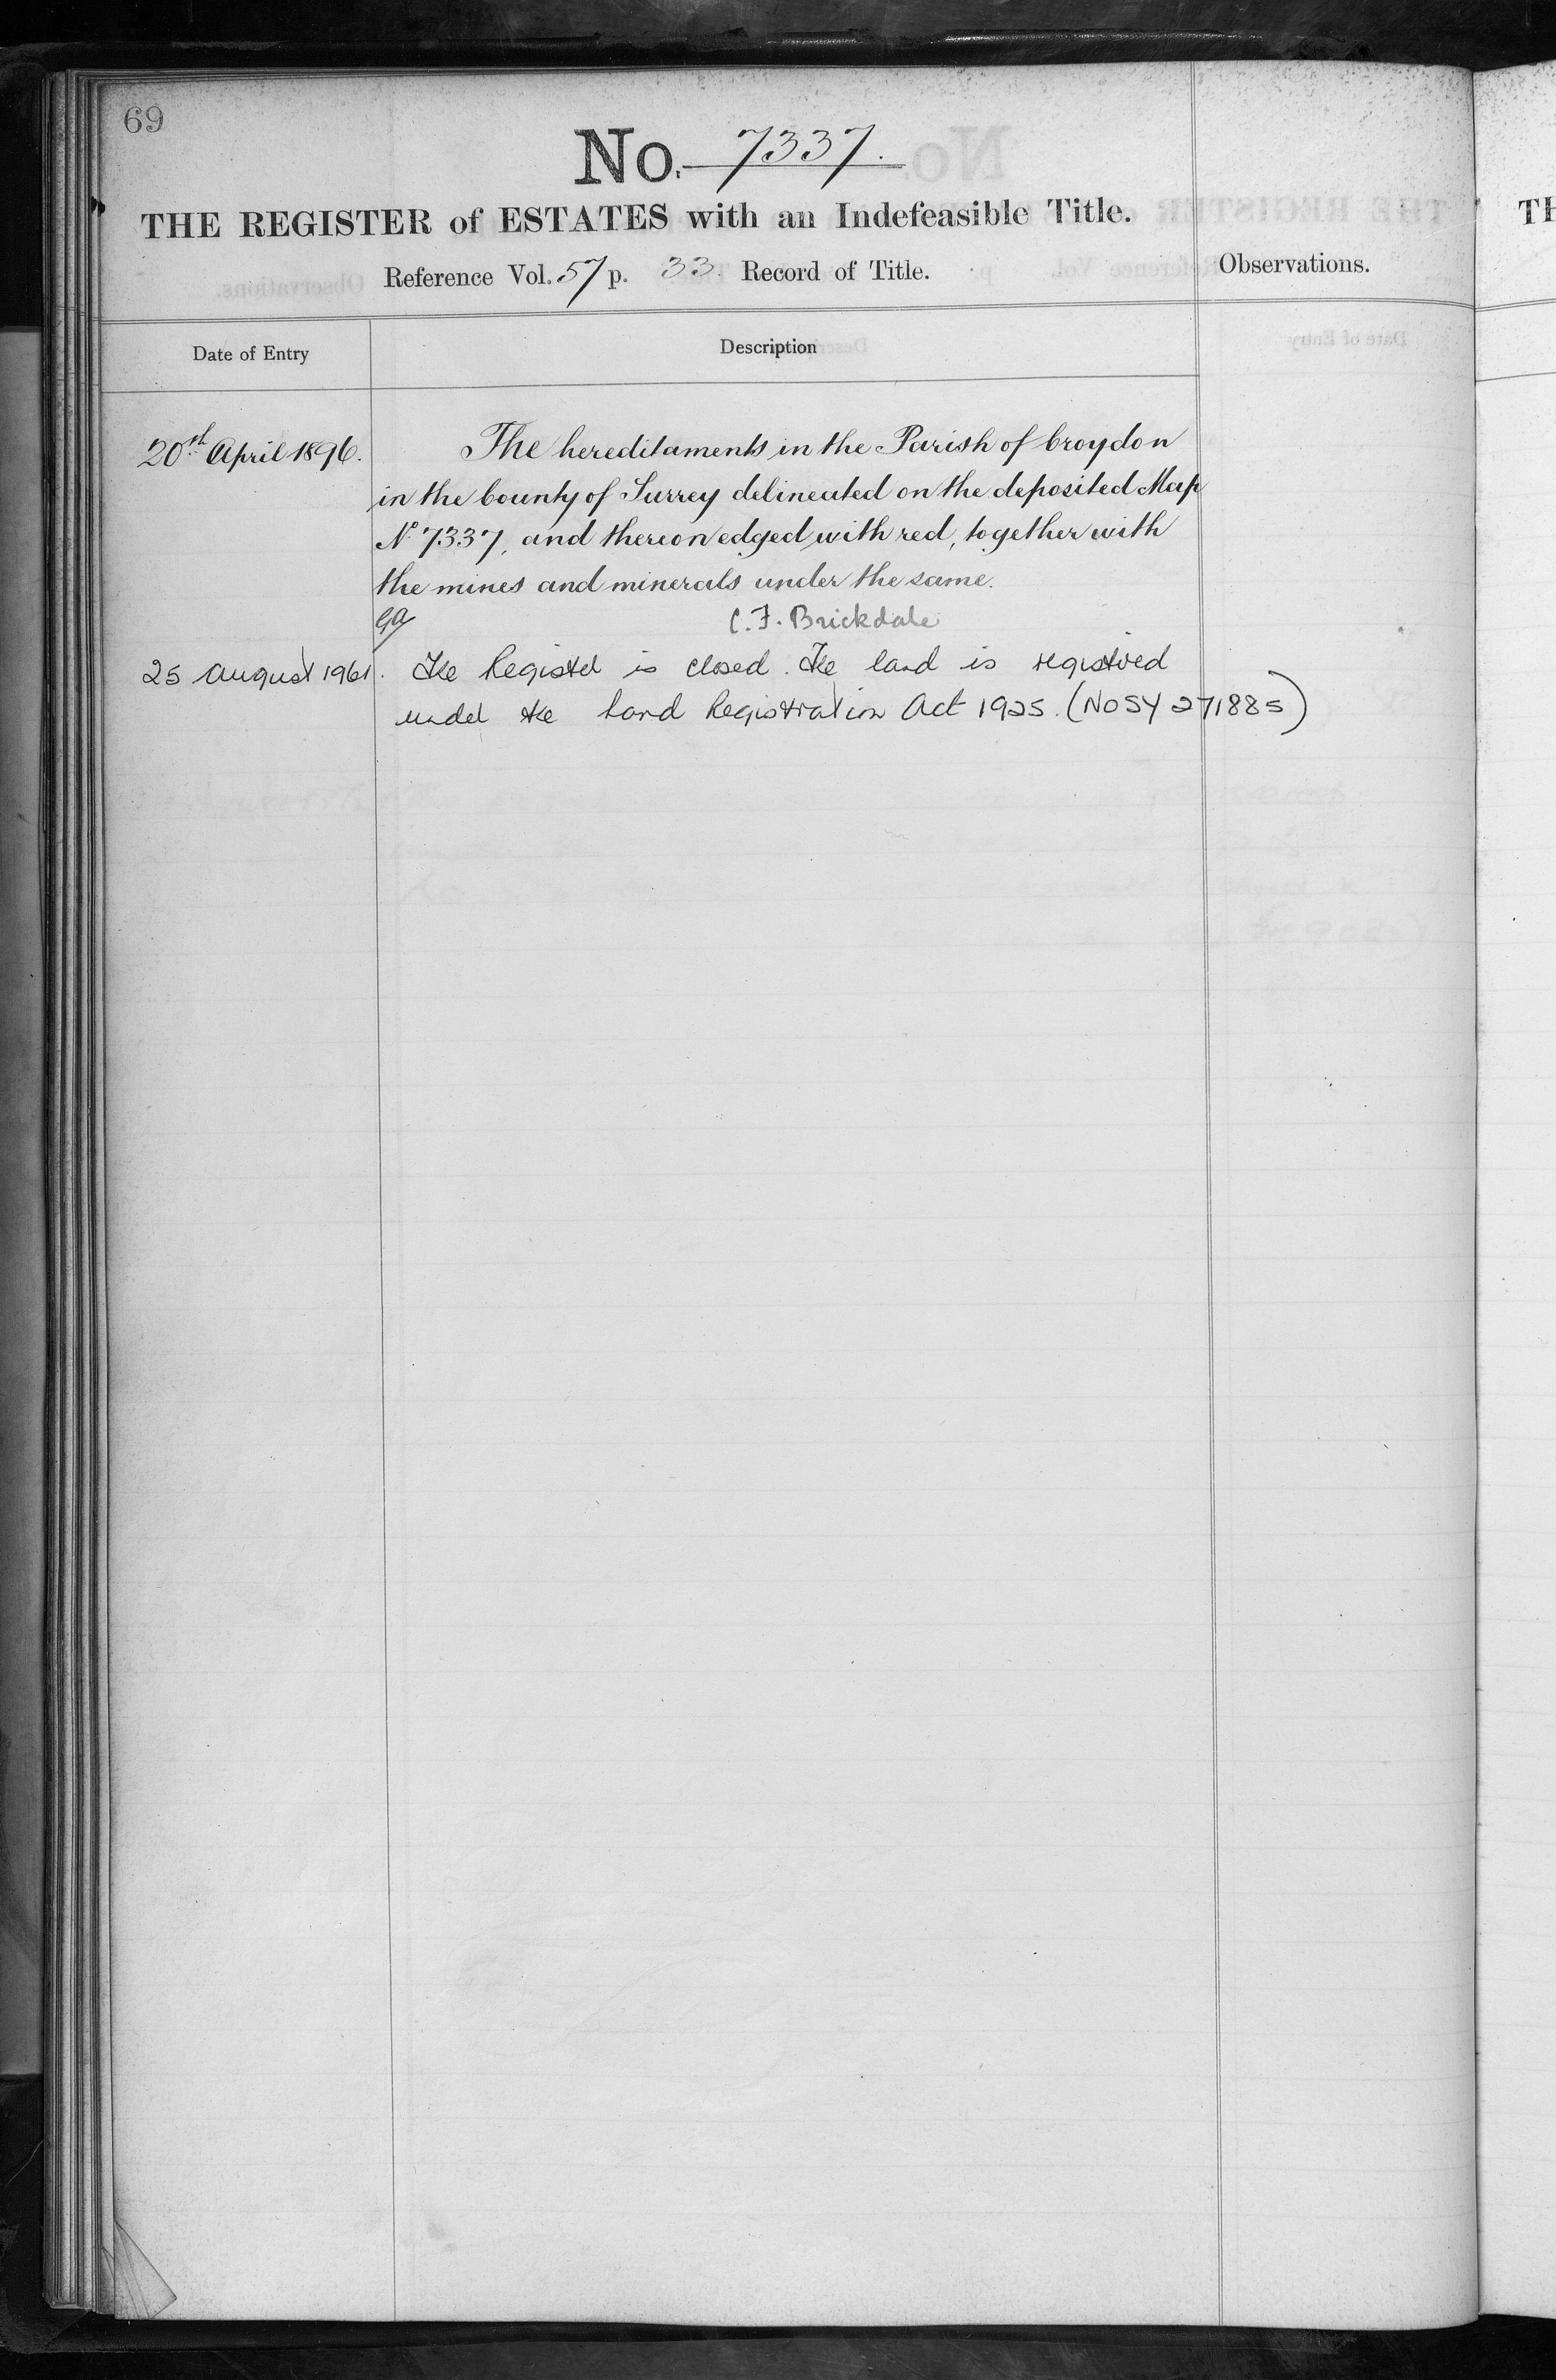 69
No. 7337.
THE REGISTER of ESTATES with an Indefeasible Title.
Reference Vol. 57 p. 33. Record of Title.
Observations.
Date of Entry
Description
20th April 1896.
The hereditaments in the Parish of Croydon
in the County of Surrey delineated on the deposited Map
No 7337, and thereon edged with red, together with
the mines and minerals under the same.
C. F. Brickdale
25 August 1961.
The Register is closed. The land is registered
under the Land Registration Act 1925. (No SY 271885)
TH